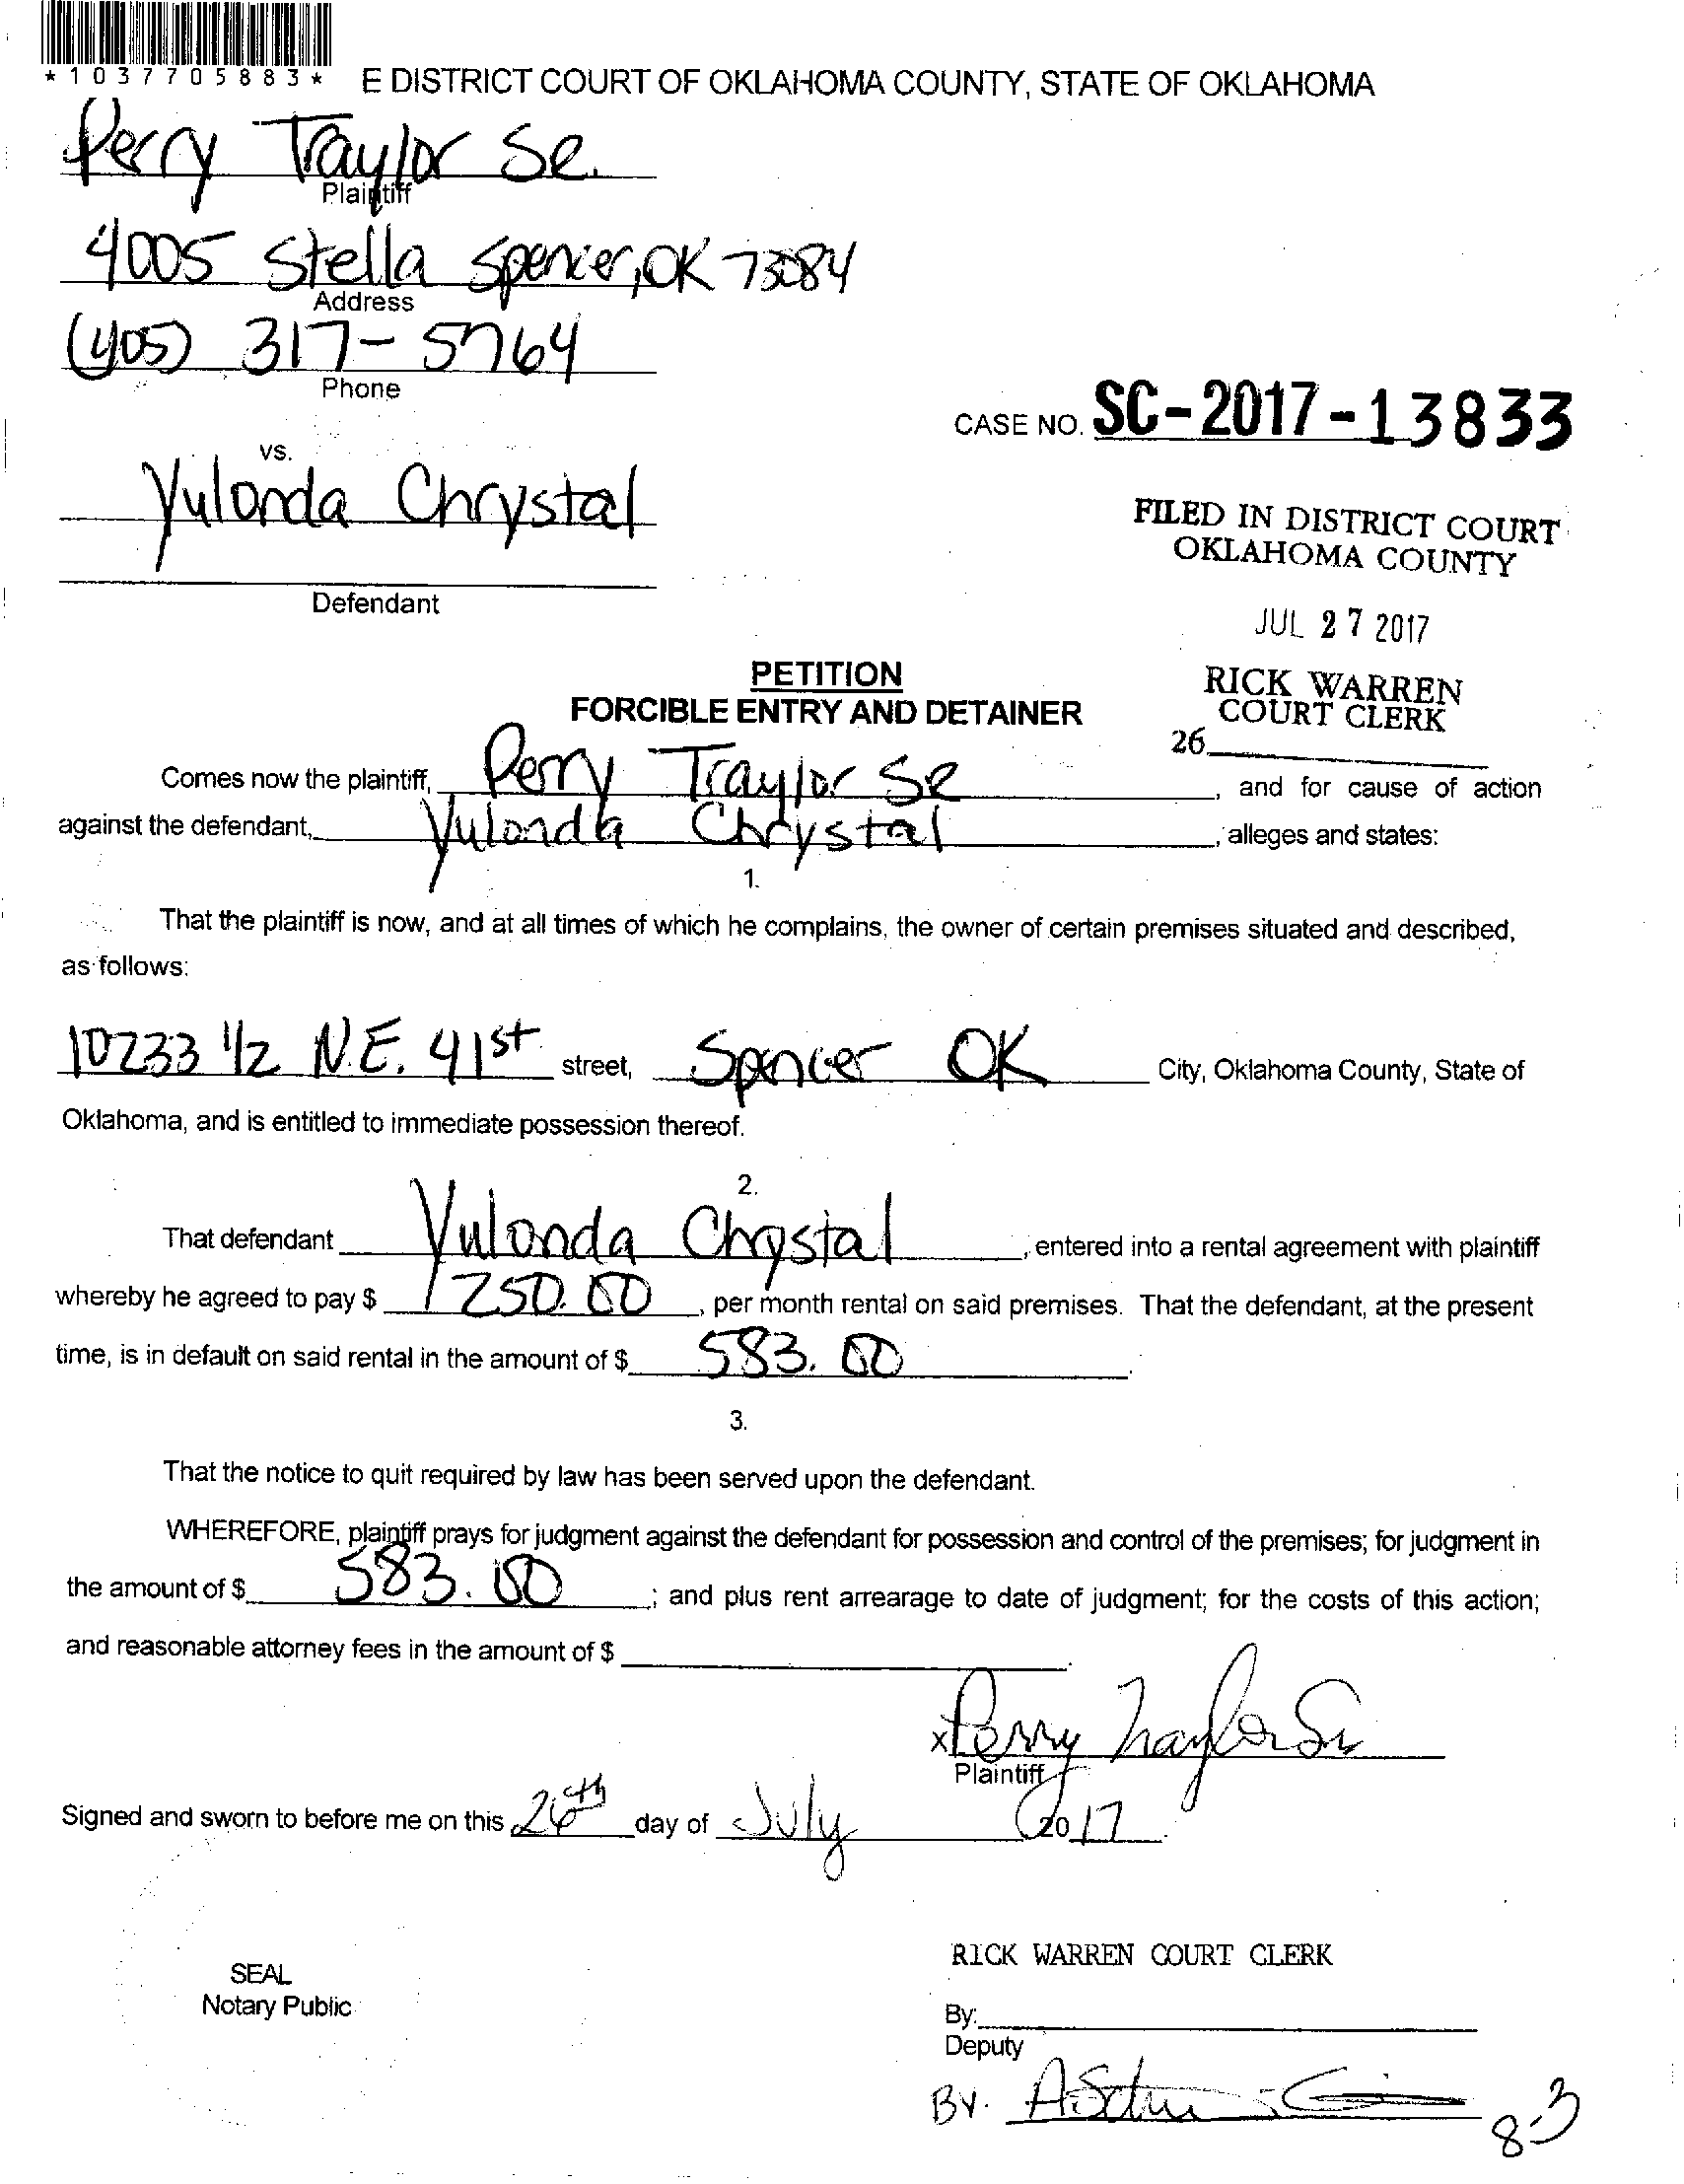 *1037705883*
E DISTRICT COURT OF OKLAHOMA COUNTY, STATE OF OKLAHOMA
Perry Traylor Se.
Plaintiff
4005 Stella Spencer, OK 73084
Address
(405) 317-5764
Phone
CASE NO. SC-2017-13833
vs.
Yulonda Chrystal
Defendant
FILED IN DISTRICT COURT
OKLAHOMA COUNTY
JUL 27 2017
RICK WARREN
COURT CLERK
26
PETITION
FORCIBLE ENTRY AND DETAINER
Comes now the plaintiff, Perry Traylor Se, and for cause of action
against the defendant, Yulonda Chrystal, alleges and states:
1.
That the plaintiff is now, and at all times of which he complains, the owner of certain premises situated and described,
as follows:
10233 1/2 N.E. 41st street, Spencer OK City, Oklahoma County, State of
Oklahoma, and is entitled to immediate possession thereof.
2.
That defendant Yulonda Chrystal, entered into a rental agreement with plaintiff
whereby he agreed to pay $ 250.00, per month rental on said premises. That the defendant, at the present
time, is in default on said rental in the amount of $ 583.00.
3.
That the notice to quit required by law has been served upon the defendant.
WHEREFORE, plaintiff prays for judgment against the defendant for possession and control of the premises; for judgment in
the amount of $ 583.00; and plus rent arrearage to date of judgment; for the costs of this action;
and reasonable attorney fees in the amount of $ .
x Perry Traylor Sr
Plaintiff
Signed and sworn to before me on this 26th day of July 2017.
SEAL
Notary Public
RICK WARREN COURT CLERK
By:
Deputy
By.
8-3